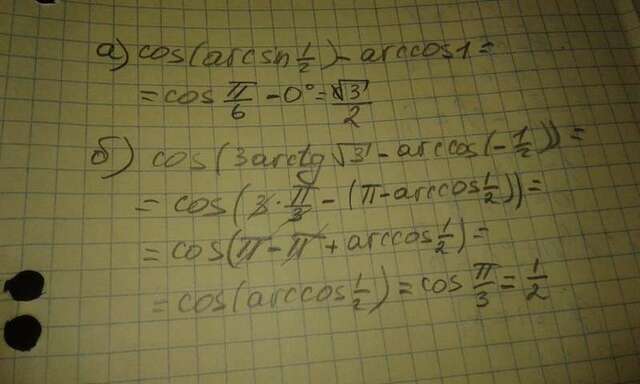 а) cos(arcsn 1/2) - arccos1 =
= cos π/6 - 0° = √3/2
б) cos(3arctg√3 - arccos(-1/2)) =
= cos(3·π/3 - (π-arccos 1/2)) =
= cos(π-π+arccos 1/2) =
= cos(arccos 1/2) = cos π/3 = 1/2